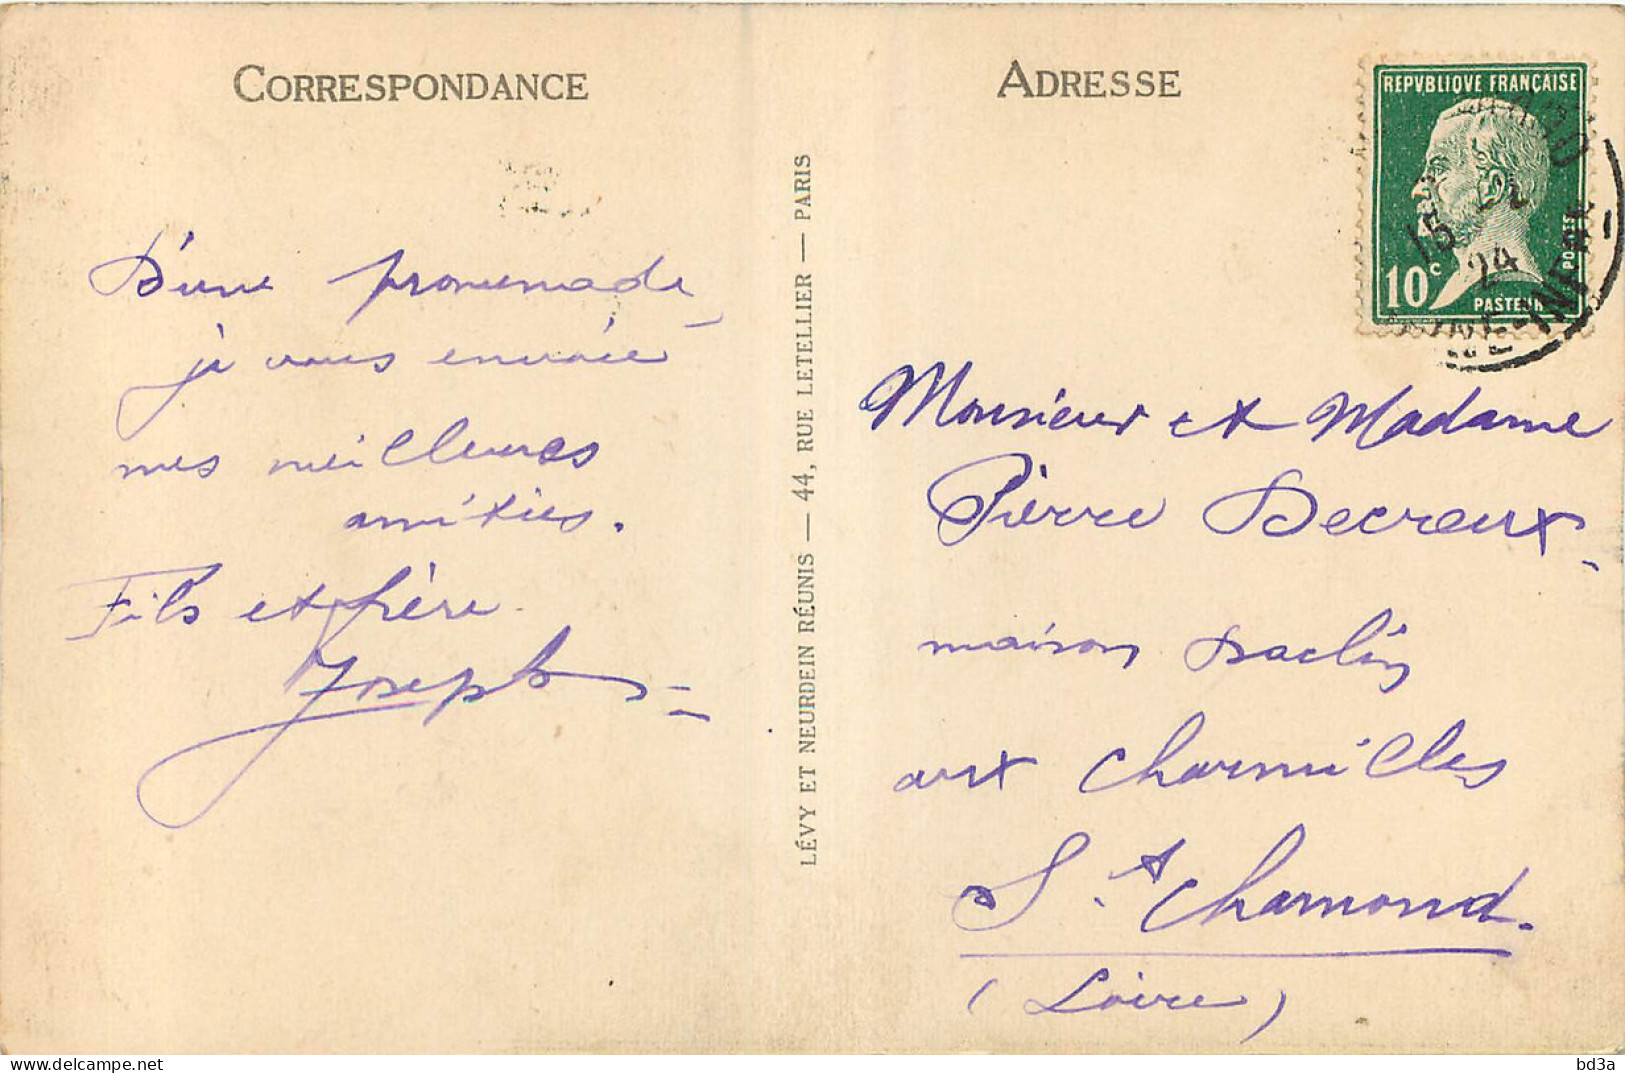 CORRESPONDANCE
D'une promenade
je vous envoie
mes meilleures
amitiés.
Fils et frère
Joseph
LÉVY ET NEURDEIN RÉUNIS — 44, RUE LETELLIER — PARIS
ADRESSE
REPVBLIQVE FRANÇAISE
10c
POSTES
PASTEUR
15
24
NE-INFRE
Monsieur et Madame
Pierre Decreux
maison
aux Charmilles
St Chamond.
(Loire)
bd3a